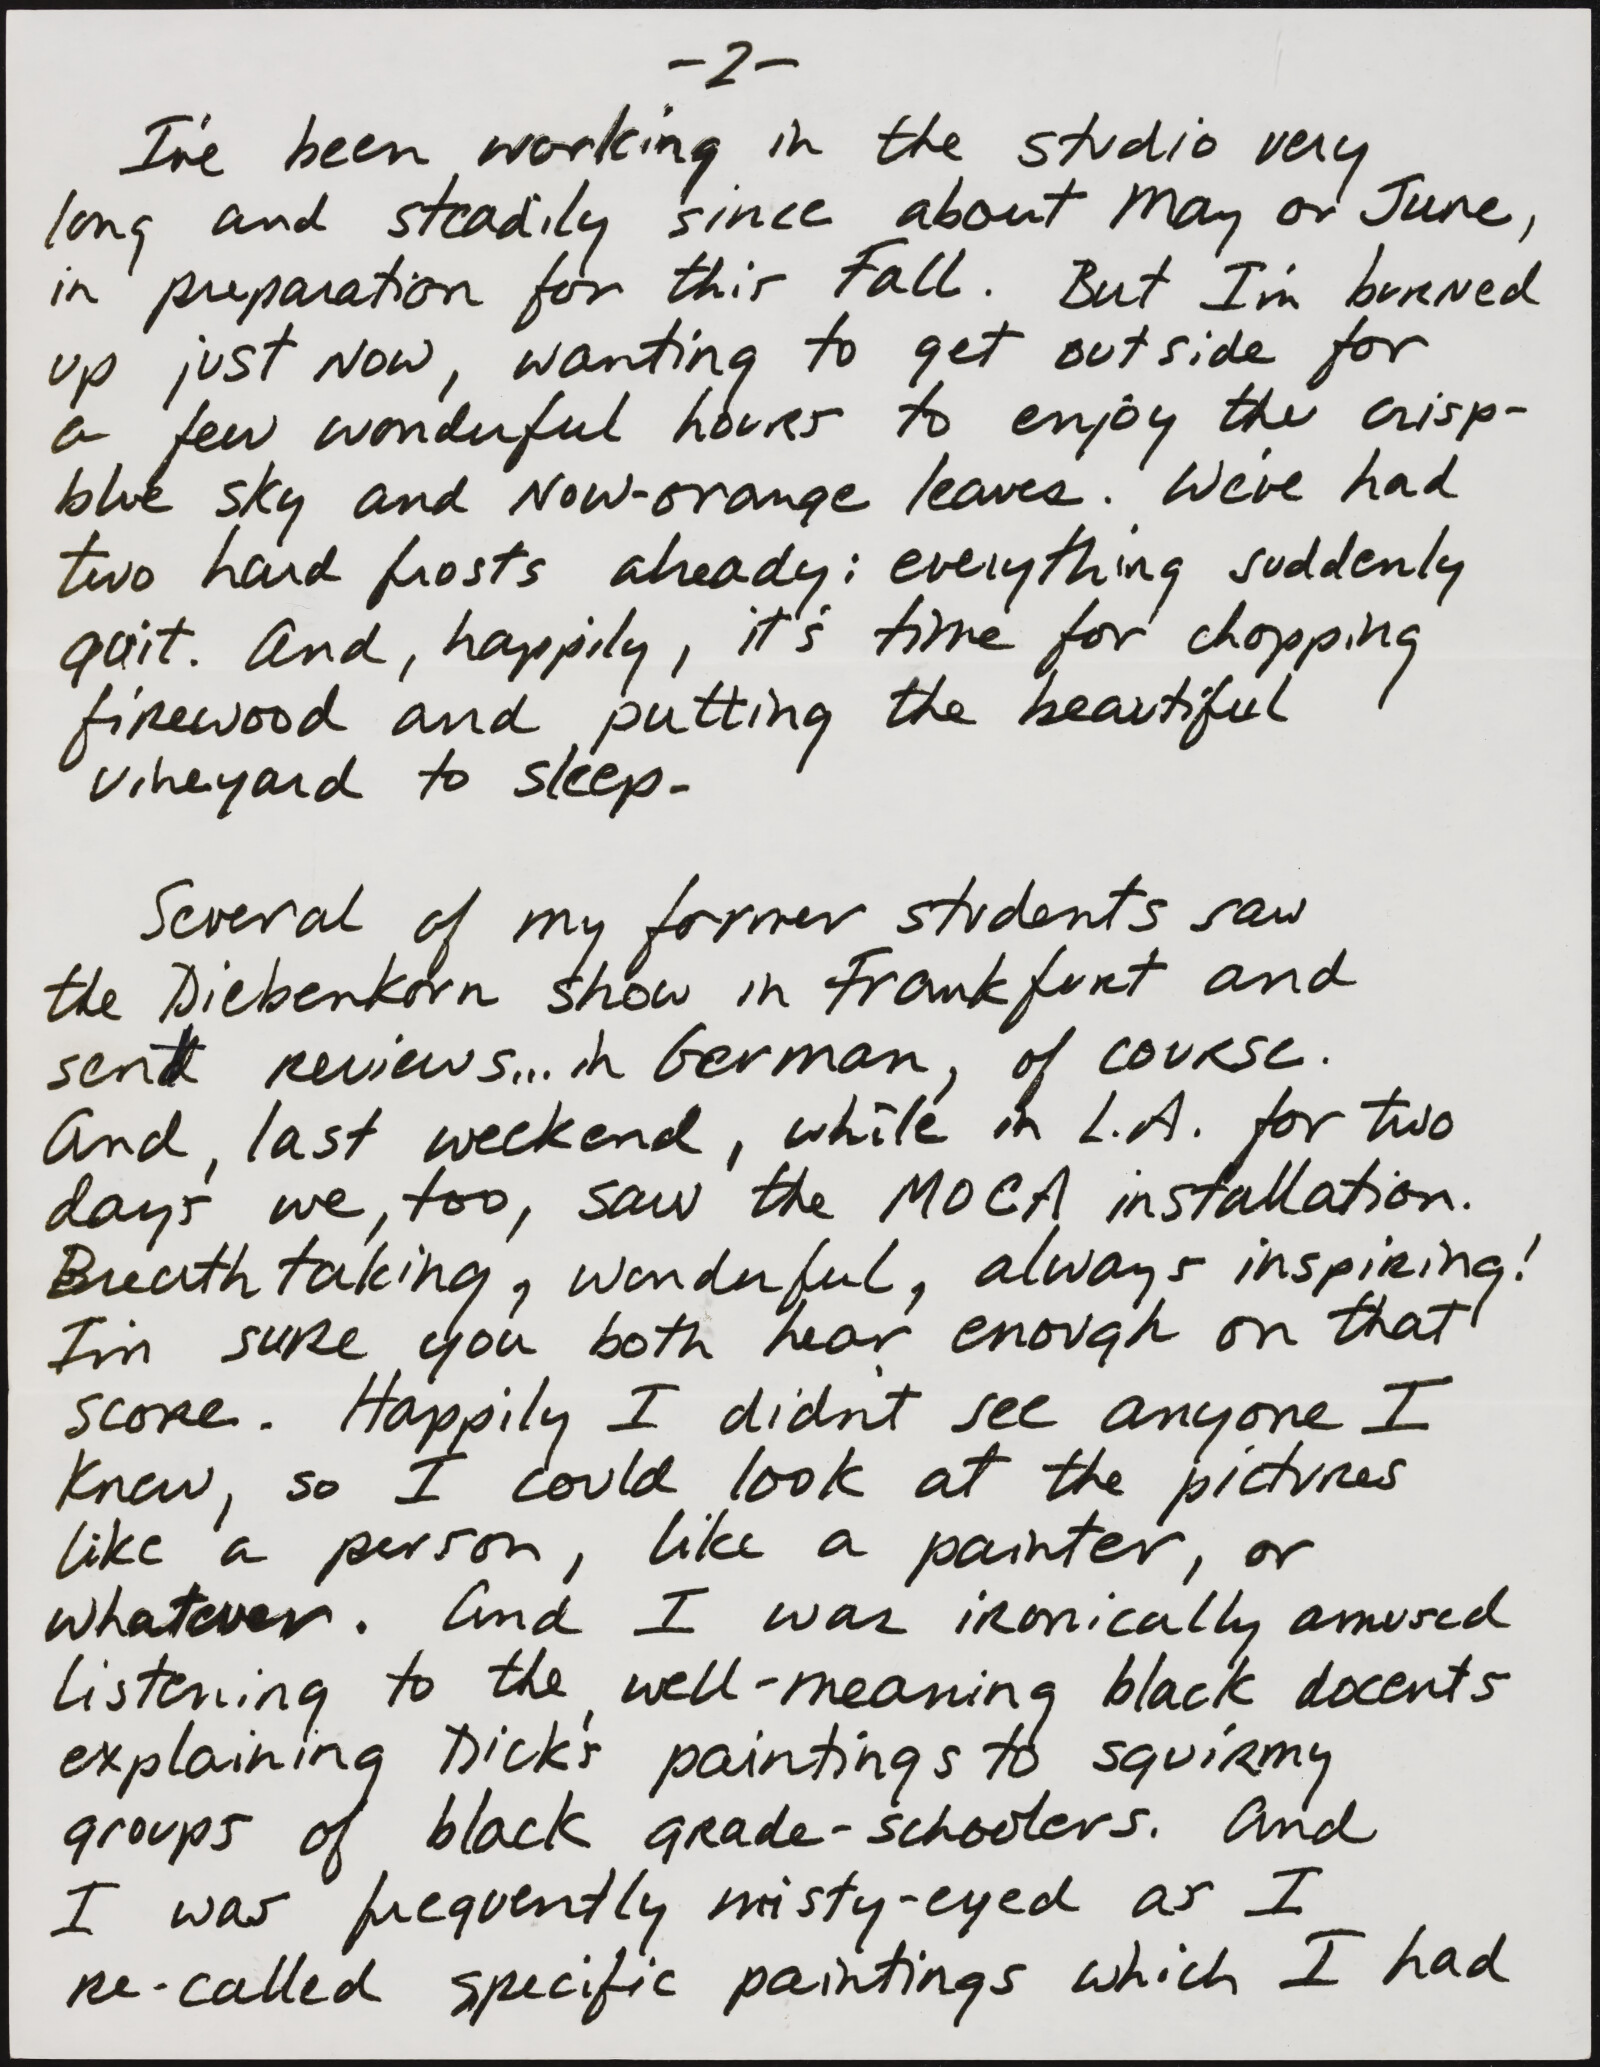 -2-
I've been working in the studio very
long and steadily since about May or June,
in preparation for this Fall. But I'm burned
up just now, wanting to get outside for
a few wonderful hours to enjoy the crisp-
blue sky and now-orange leaves. We've had
two hard frosts already; everything suddenly
quit. And, happily, it's time for chopping
firewood and putting the beautiful
vineyard to sleep.
Several of my former students saw
the Diebenkorn show in Frankfurt and
sent reviews... in German, of course.
And, last weekend, while in L.A. for two
days we, too, saw the MOCA installation.
Breathtaking, wonderful, always inspiring!
I'm sure you both hear enough on that
score. Happily I didn't see anyone I
knew, so I could look at the pictures
like a person, like a painter, or
whatever. And I was ironically amused
listening to the well-meaning black docents
explaining Dick's paintings to squirmy
groups of black grade-schoolers. And
I was frequently misty-eyed as I
re-called specific paintings which I had